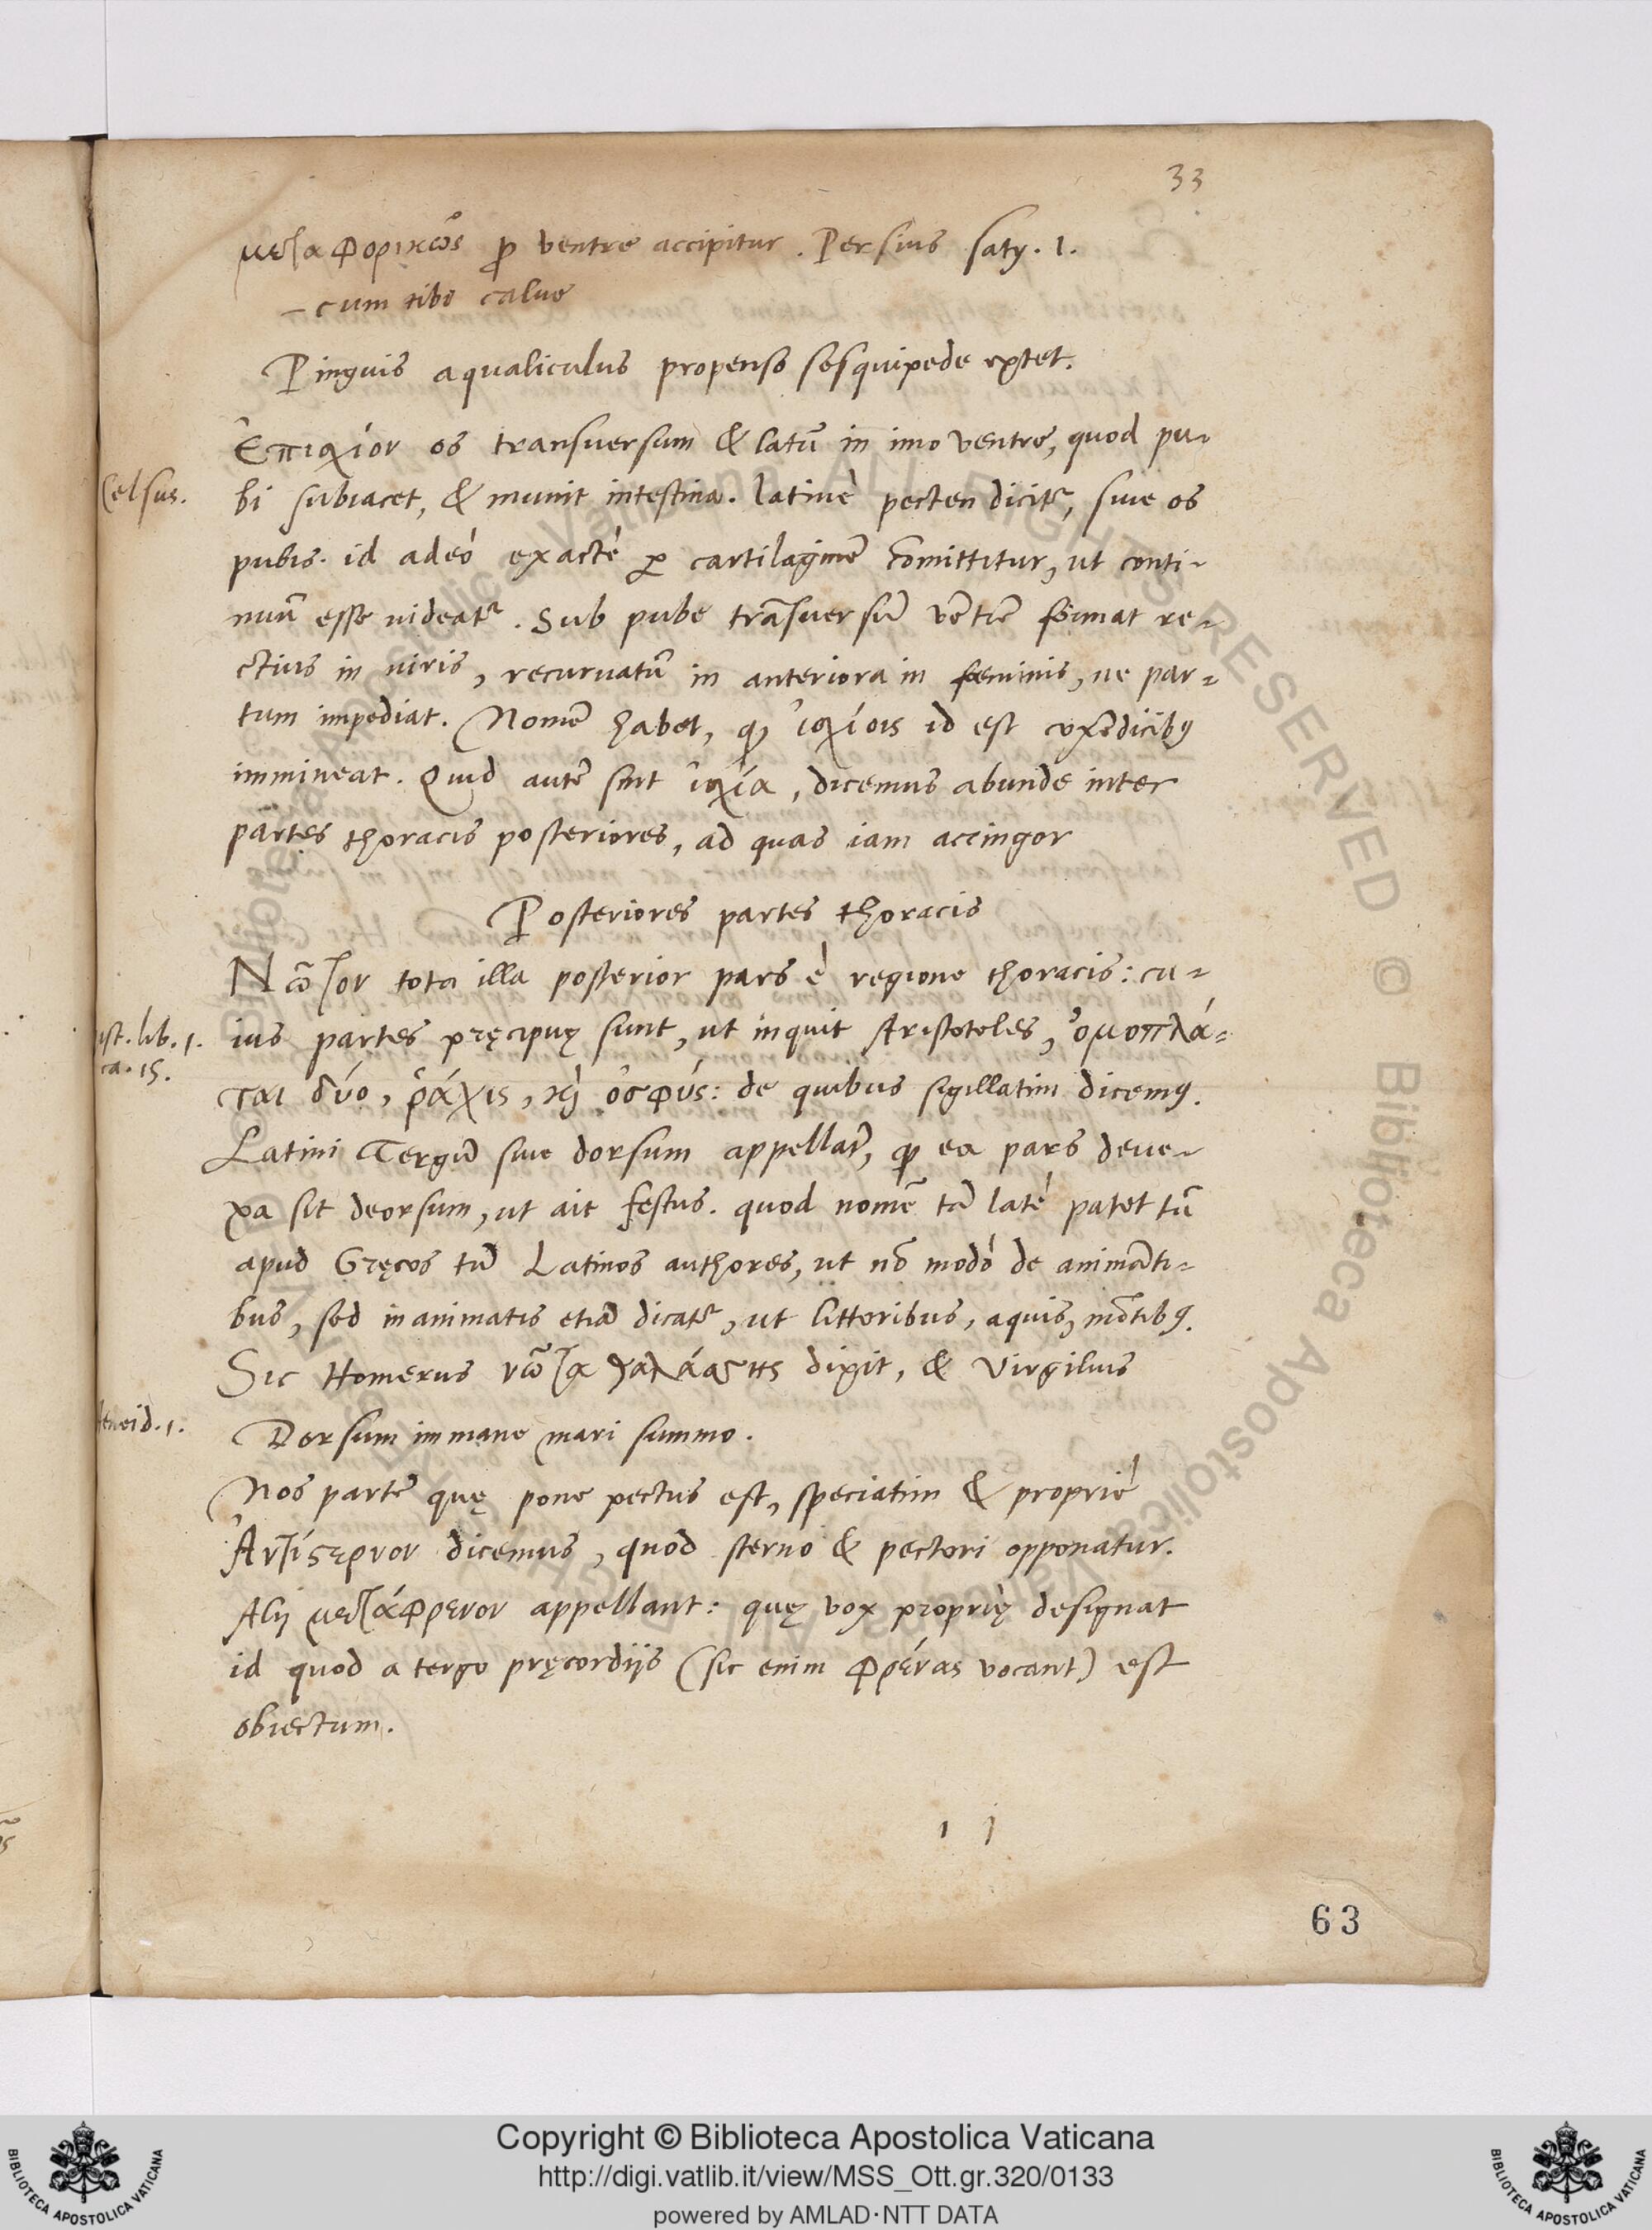 33
μεταφορικῶς ꝓ ventre accipitur. Persius saty. 1.
– cum tibi calve
Pinguis aqualiculus propenso sesquipede extet.
Ἐπισχίον os transversum & latū in imo ventre, quod pu-
Celsus.
bi subiacet, & munit intestina. latinè pecten dicit᷑, sive os
pubis. id adeò exactè ꝑ cartilaginē cōmittitur, ut conti-
nuū esse videat᷑. Sub pube trāsversū vētrē format re-
ctius in viris, recurvatū in anteriora in feminis, ne par-
tum impediat. Nomē habet, ꝙ ἰσχίοις id est coxēdicibꝯ
immineat. Quid autē sint ἰσχία, dicemus abunde inter
partes thoracis posteriores, ad quas iam accingor
Posteriores partes thoracis
Νῶτον tota illa posterior pars è regione thoracis: cu-
ist. lib. 1.
ca. 15.
ius partes pręcipuę sunt, ut inquit Aristoteles, ὀμοπλά-
ται δύο, ῥάχις, καὶ ὀσφύς: de quibus sigillatim dicemꝯ.
Latini Tergū sive dorsum appellāt, ꝙ ea pars deve-
xa sit deorsum, ut ait festus. quod nomē tā latè patet tū
apud Gręcos tū Latinos authores, ut nō modò de animāti-
bus, sed inanimatis etiā dicat᷑, ut littoribus, aquis, mōtibꝯ.
Sic Homerus νῶτα θαλάσσης dixit, & Virgilius
Aeneid. 1.
Dorsum immane mari summo.
Nos partē quę pone pectus est, speciatim & propriè
Ἀντίστερνον dicemus, quod sterno & pectori opponatur.
Alij μετάφρενον appellant: quę vox proprię designat
id quod a tergo pręcordijs (sic enim φρένας vocant) est
obiectum.
63
Copyright © Biblioteca Apostolica Vaticana
http://digi.vatlib.it/view/MSS_Ott.gr.320/0133
powered by AMLAD·NTT DATA